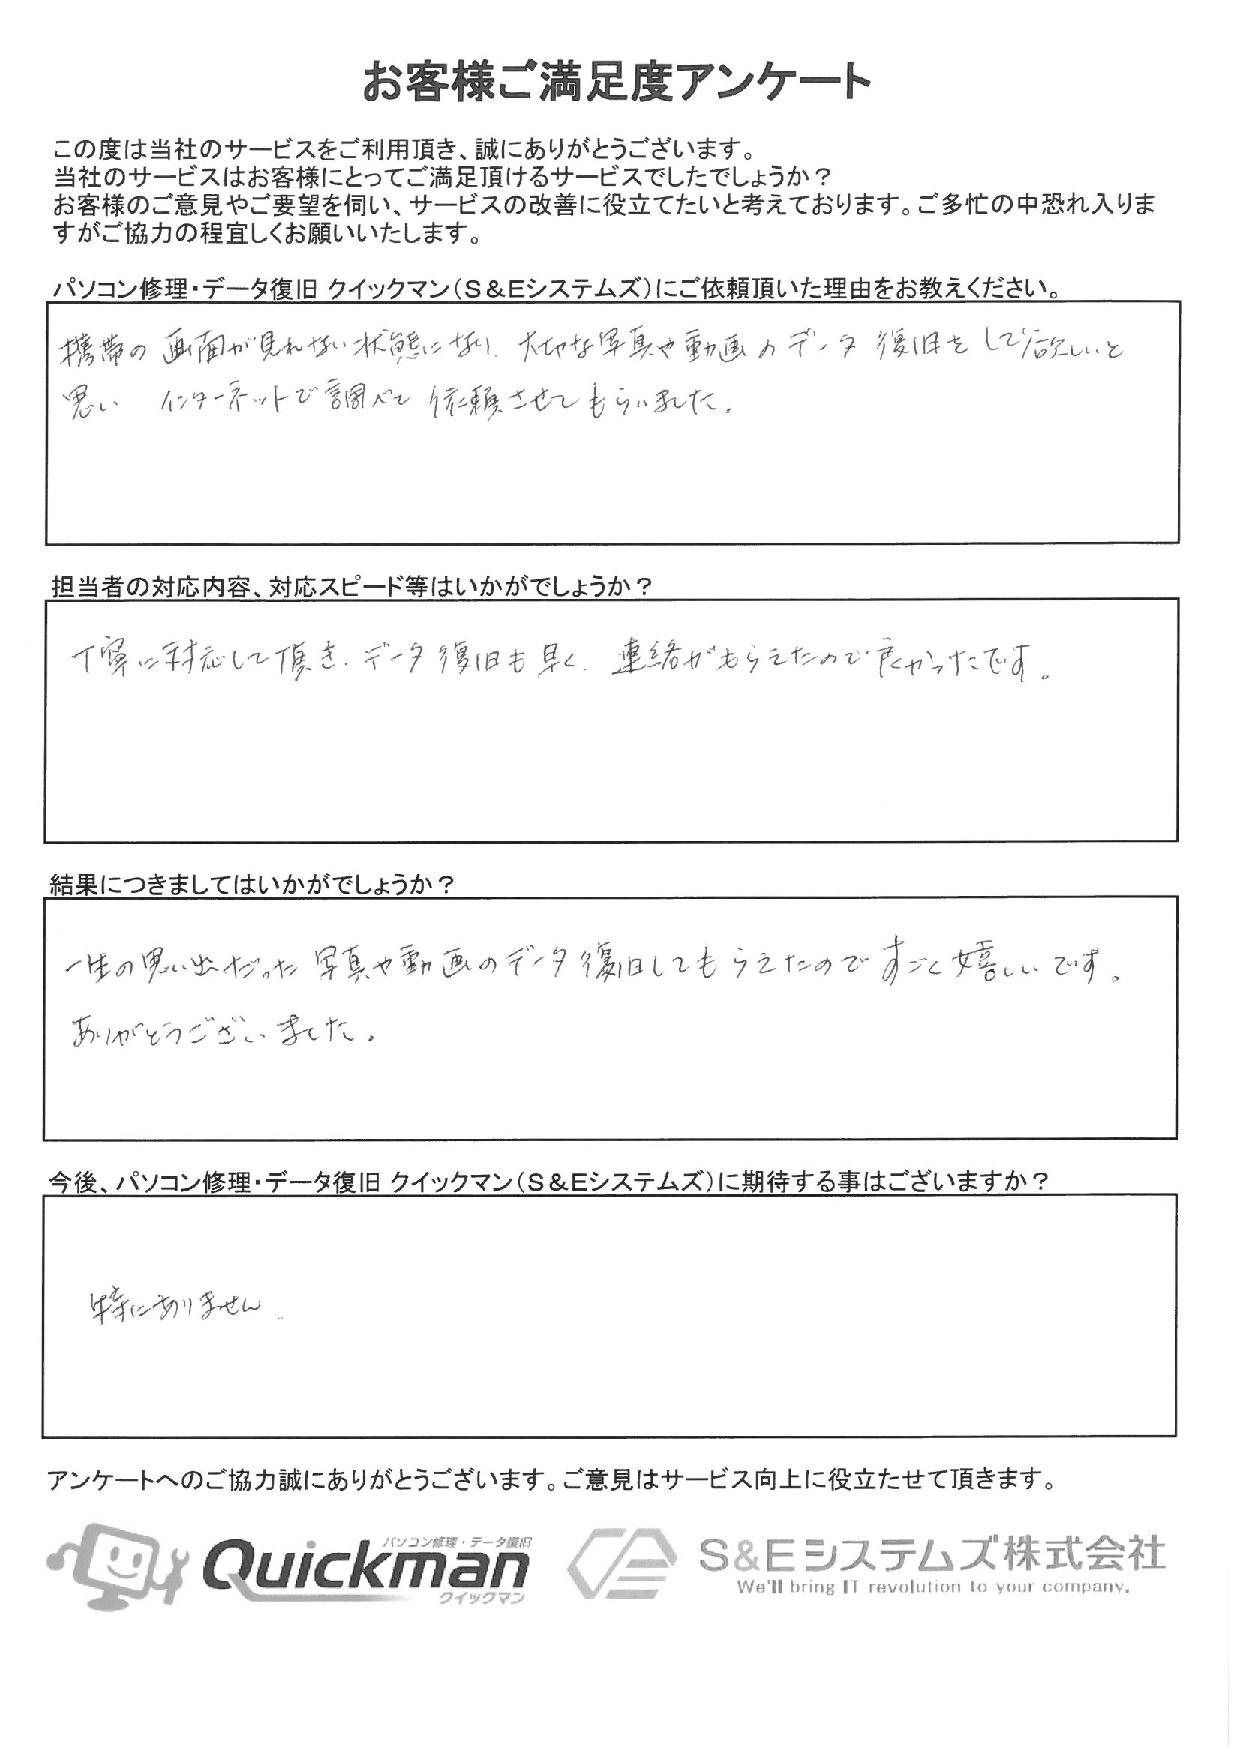 お客様ご満足度アンケート
この度は当社のサービスをご利用頂き、誠にありがとうございます。
当社のサービスはお客様にとってご満足頂けるサービスでしたでしょうか？
お客様のご意見やご要望を伺い、サービスの改善に役立てたいと考えております。ご多忙の中恐れ入りま
すがご協力の程宜しくお願いいたします。
パソコン修理・データ復旧 クイックマン（Ｓ＆Ｅシステムズ）にご依頼頂いた理由をお教えください。
携帯の 画面が見れない状態になり、大切な写真や動画のデータ 復旧をして欲しいと
思い インターネットで調べて 依頼させてもらいました。
担当者の対応内容、対応スピード等はいかがでしょうか？
丁寧に対応して頂き、データ復旧も早く、連絡がもらえたので良かったです。
結果につきましてはいかがでしょうか？
一生の思い出だった 写真や動画のデータ復旧してもらえたので すごく嬉しいです。
ありがとうございました。
今後、パソコン修理・データ復旧 クイックマン（Ｓ＆Ｅシステムズ）に期待する事はございますか？
特にありません。
アンケートへのご協力誠にありがとうございます。ご意見はサービス向上に役立たせて頂きます。
パソコン修理・データ復旧
Quickman
クイックマン
S&Eシステムズ株式会社
We'll bring IT revolution to your company.